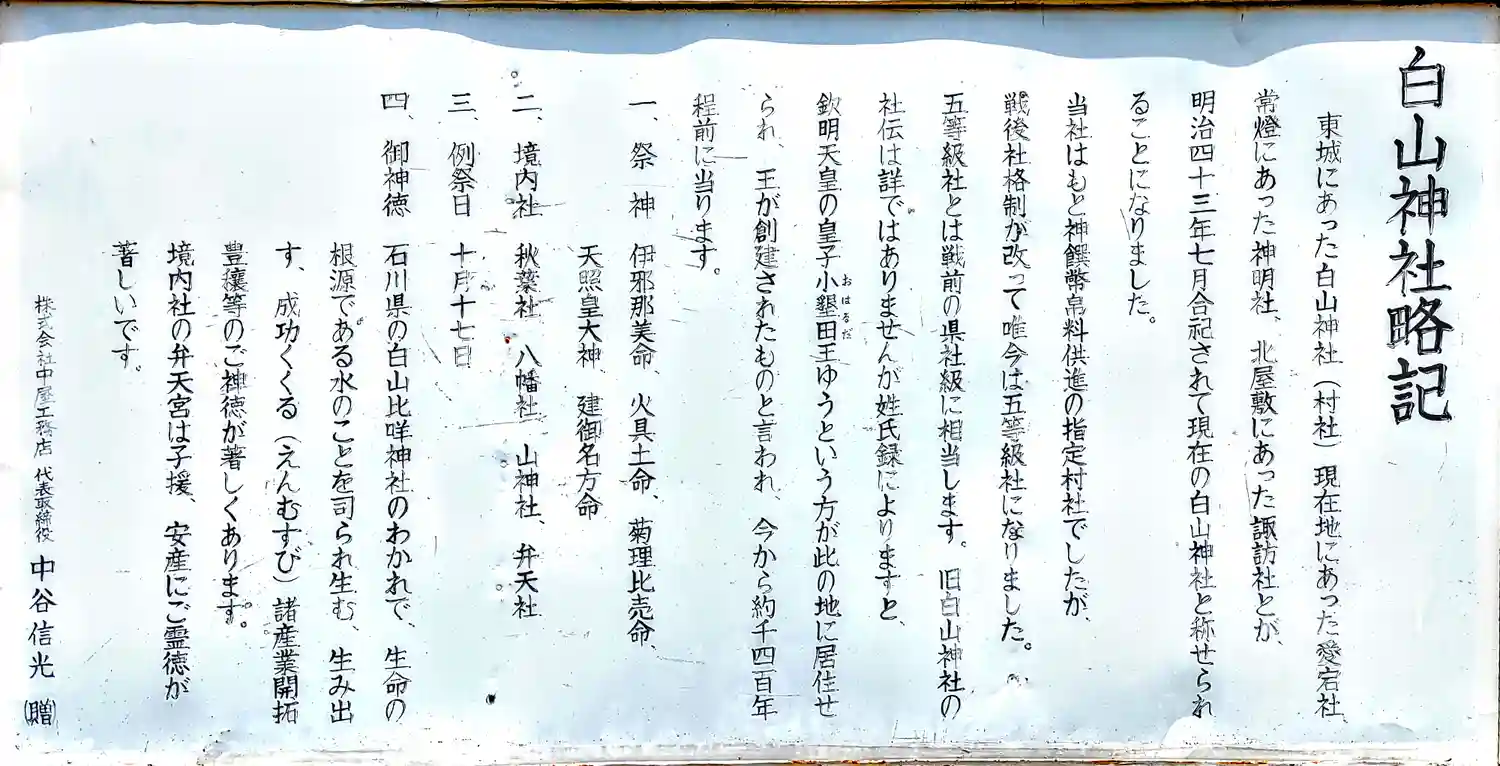 白山神社略記
東城にあった白山神社（村社）現在地にあった愛宕社、
常燈にあった神明社、北屋敷にあった諏訪社とが、
明治四十三年七月合祀されて現在の白山神社と称せられ
ることになりました。
当社はもと神饌幣帛料供進の指定村社でしたが、
戦後社格制が改って唯今は五等級社になりました。
五等級社とは戦前の県社級に相当します。旧白山神社の
社伝は詳ではありませんが姓氏録によりますと、
欽明天皇の皇子小墾田王ゆうという方が此の地に居住せ
おはるだ
られ、王が創建されたものと言われ、今から約千四百年
程前に当ります。
一、祭神 伊邪那美命、火具土命、菊理比売命、
天照皇大神、建御名方命
二、境内社 秋葉社、八幡社、山神社、弁天社
三、例祭日 十月十七日
四、御神徳 石川県の白山比咩神社のわかれで、生命の
根源である水のことを司られ生む、生み出
す、成功くくる（えんむすび）諸産業開拓
豊穣等のご神徳が著しくあります。
境内社の弁天宮は子援、安産にご霊徳が
著しいです。
株式会社中屋工務店 代表取締役 中谷信光（贈）